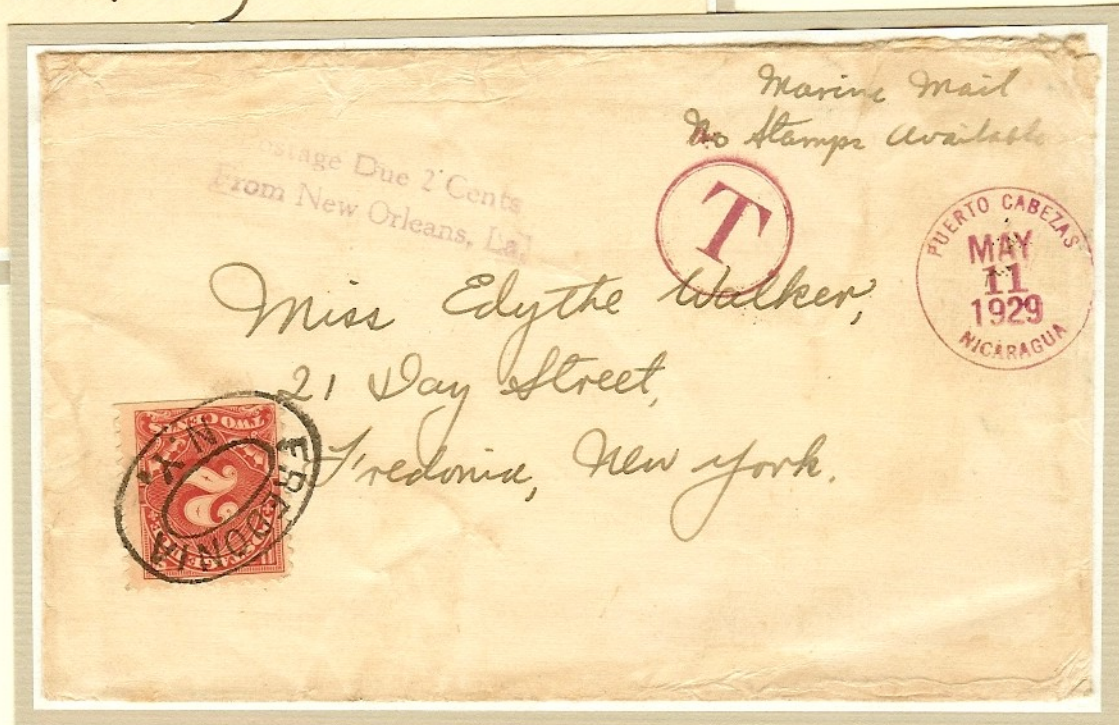 Marine Mail
No Stamps Available
Postage Due 2 Cents
From New Orleans, La.
T
PUERTO CABEZAS
MAY
11
1929
NICARAGUA
Miss Edythe Walker,
21 Day Street,
Fredonia, New York.
TWO CENTS
2
POSTAGE DUE
FREDONIA
N.Y.